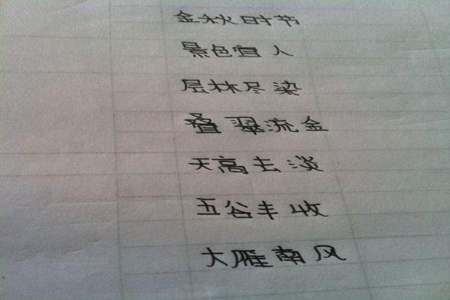 金秋时节
景色宜人
层林尽染
叠翠流金
天高去淡
五谷丰收
大雁南风